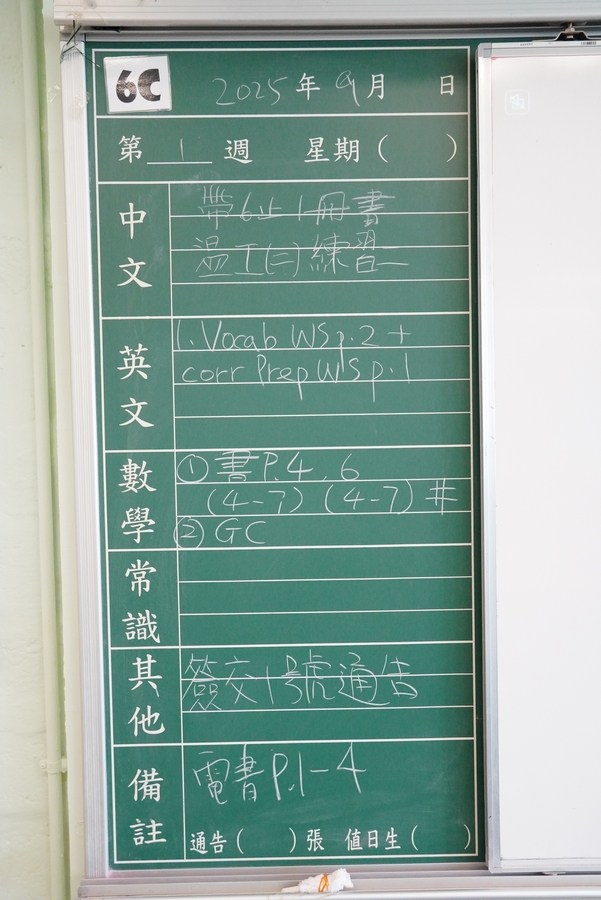 6C
2025年9月 日
第 1 週 星期( )
中文
帶6上1冊書
温工(二)練習
英文
1. Vocab WS p.2 +
corr Prep WS p.1
數學
① 書P.4, 6
(4-7) (4-7) #
② GC
常識
其他
簽交1號通告
備註
電書P.1-4
通告( )張 值日生( )